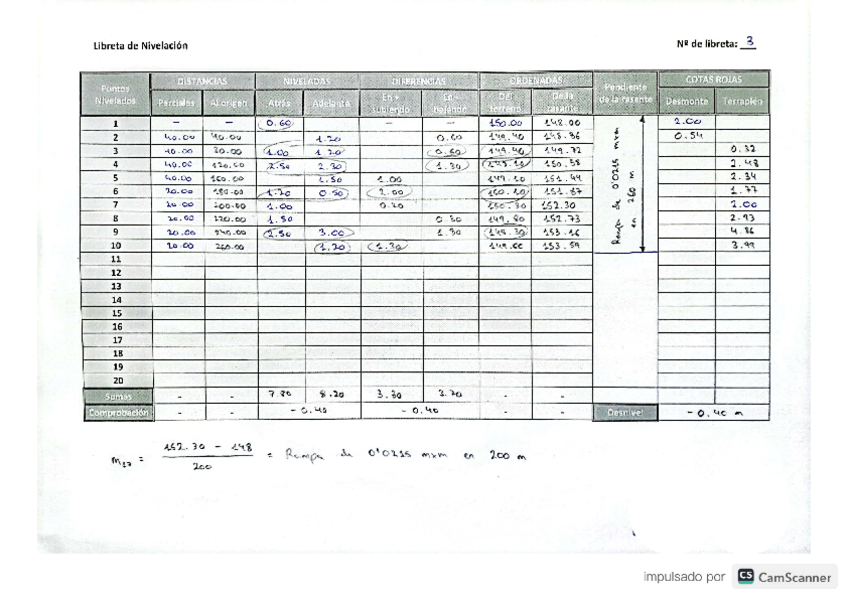 Libreta de Nivelación
Nº de libreta: 3
DISTANCIAS NIVELADAS DIFERENCIAS ORDENADAS COTAS ROJAS
Puntos Nivelados Parciales Al origen Atrás Adelante En + subiendo En - bajando Del terreno De la rasante Pendiente de la rasante Desmonte Terraplén
1 - - 0.60 - - 150.00 148.00 2.00
2 40.00 40.00 1.20 0.60 149.40 148.86 0.54
3 40.00 80.00 1.00 1.20 0.60 149.40 149.72 0.32
4 40.00 120.00 2.50 2.30 1.30 148.10 150.58 2.48
5 40.00 160.00 1.50 1.00 149.10 151.44 2.34
6 20.00 180.00 1.20 0.50 2.00 151.87 1.77
7 20.00 200.00 1.00 0.20 150.30 152.30 2.00
8 20.00 220.00 1.50 149.80 152.73 2.93
9 20.00 240.00 2.50 3.00 1.30 153.16 4.86
10 20.00 260.00 1.20 1.30 153.59 3.99
Rampa de 0'0215 mxm en 260 m
11
12
13
14
15
16
17
18
19
20
Sumas - - 7.80 8.20 3.30 3.70 - -
Comprobación - - - 0.40 - 0.40 - - Desnivel - 0.40 m
152.30 - 148
m₁₇ = = Rampa de 0'0215 mxm en 200 m
200
impulsado por CS CamScanner